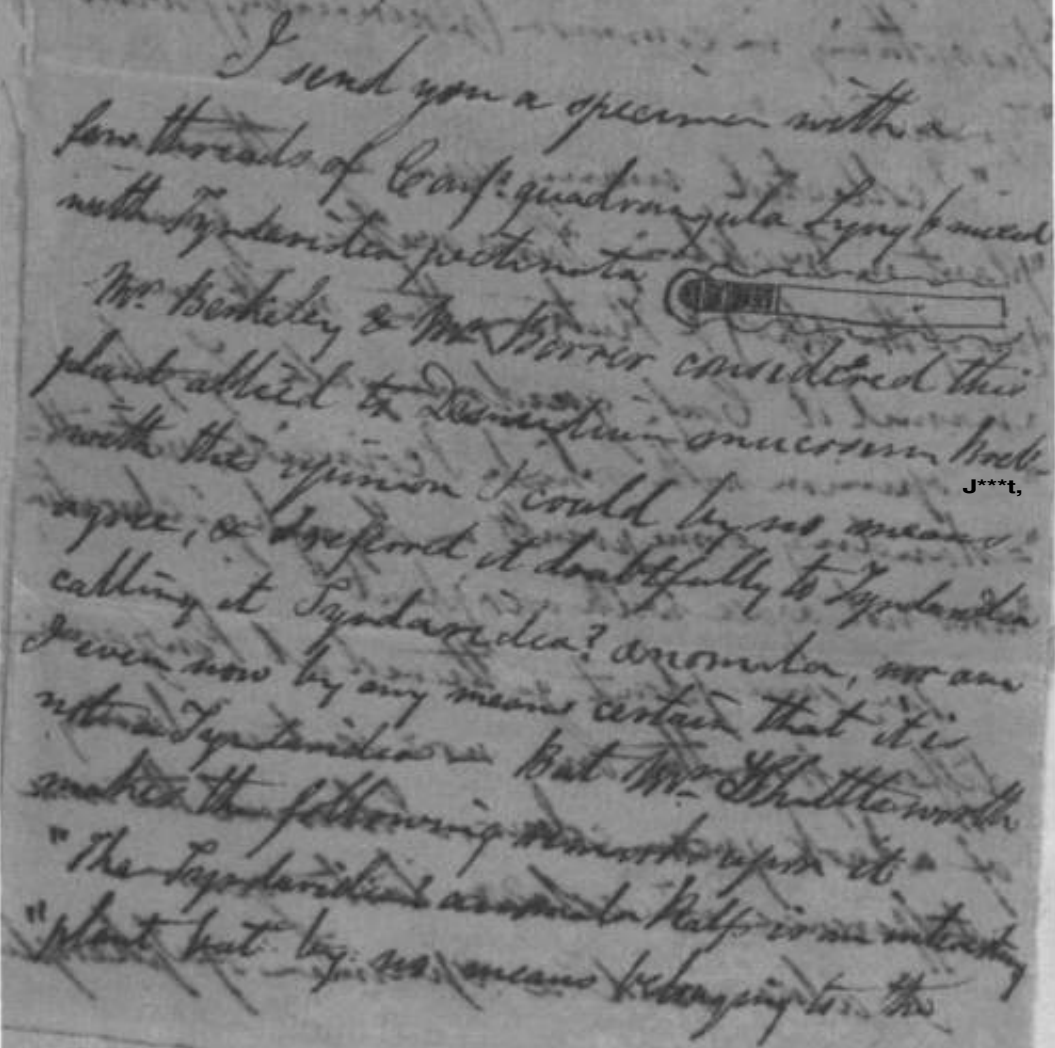 I send you a specimen with a
few threads of Conf. quadrangula Lyng b mixed
with Tyndaridea pectinata
Mr. Berkeley & Mr Borrer considered this
plant allied to Desmidium mucosum Breb-
J***t,
with this opinion I could by no means
agree, & I referred it doubtfully to Tyndaridea
calling it Tyndaridea? anomala, nor am
I even now by any means certain that it is
not a Tyndaridea - But Mr. Shuttleworth
makes the following remarks upon it -
"The Tyndaridea anomala Ralfs is an interesting
"plant but by no means belonging to the